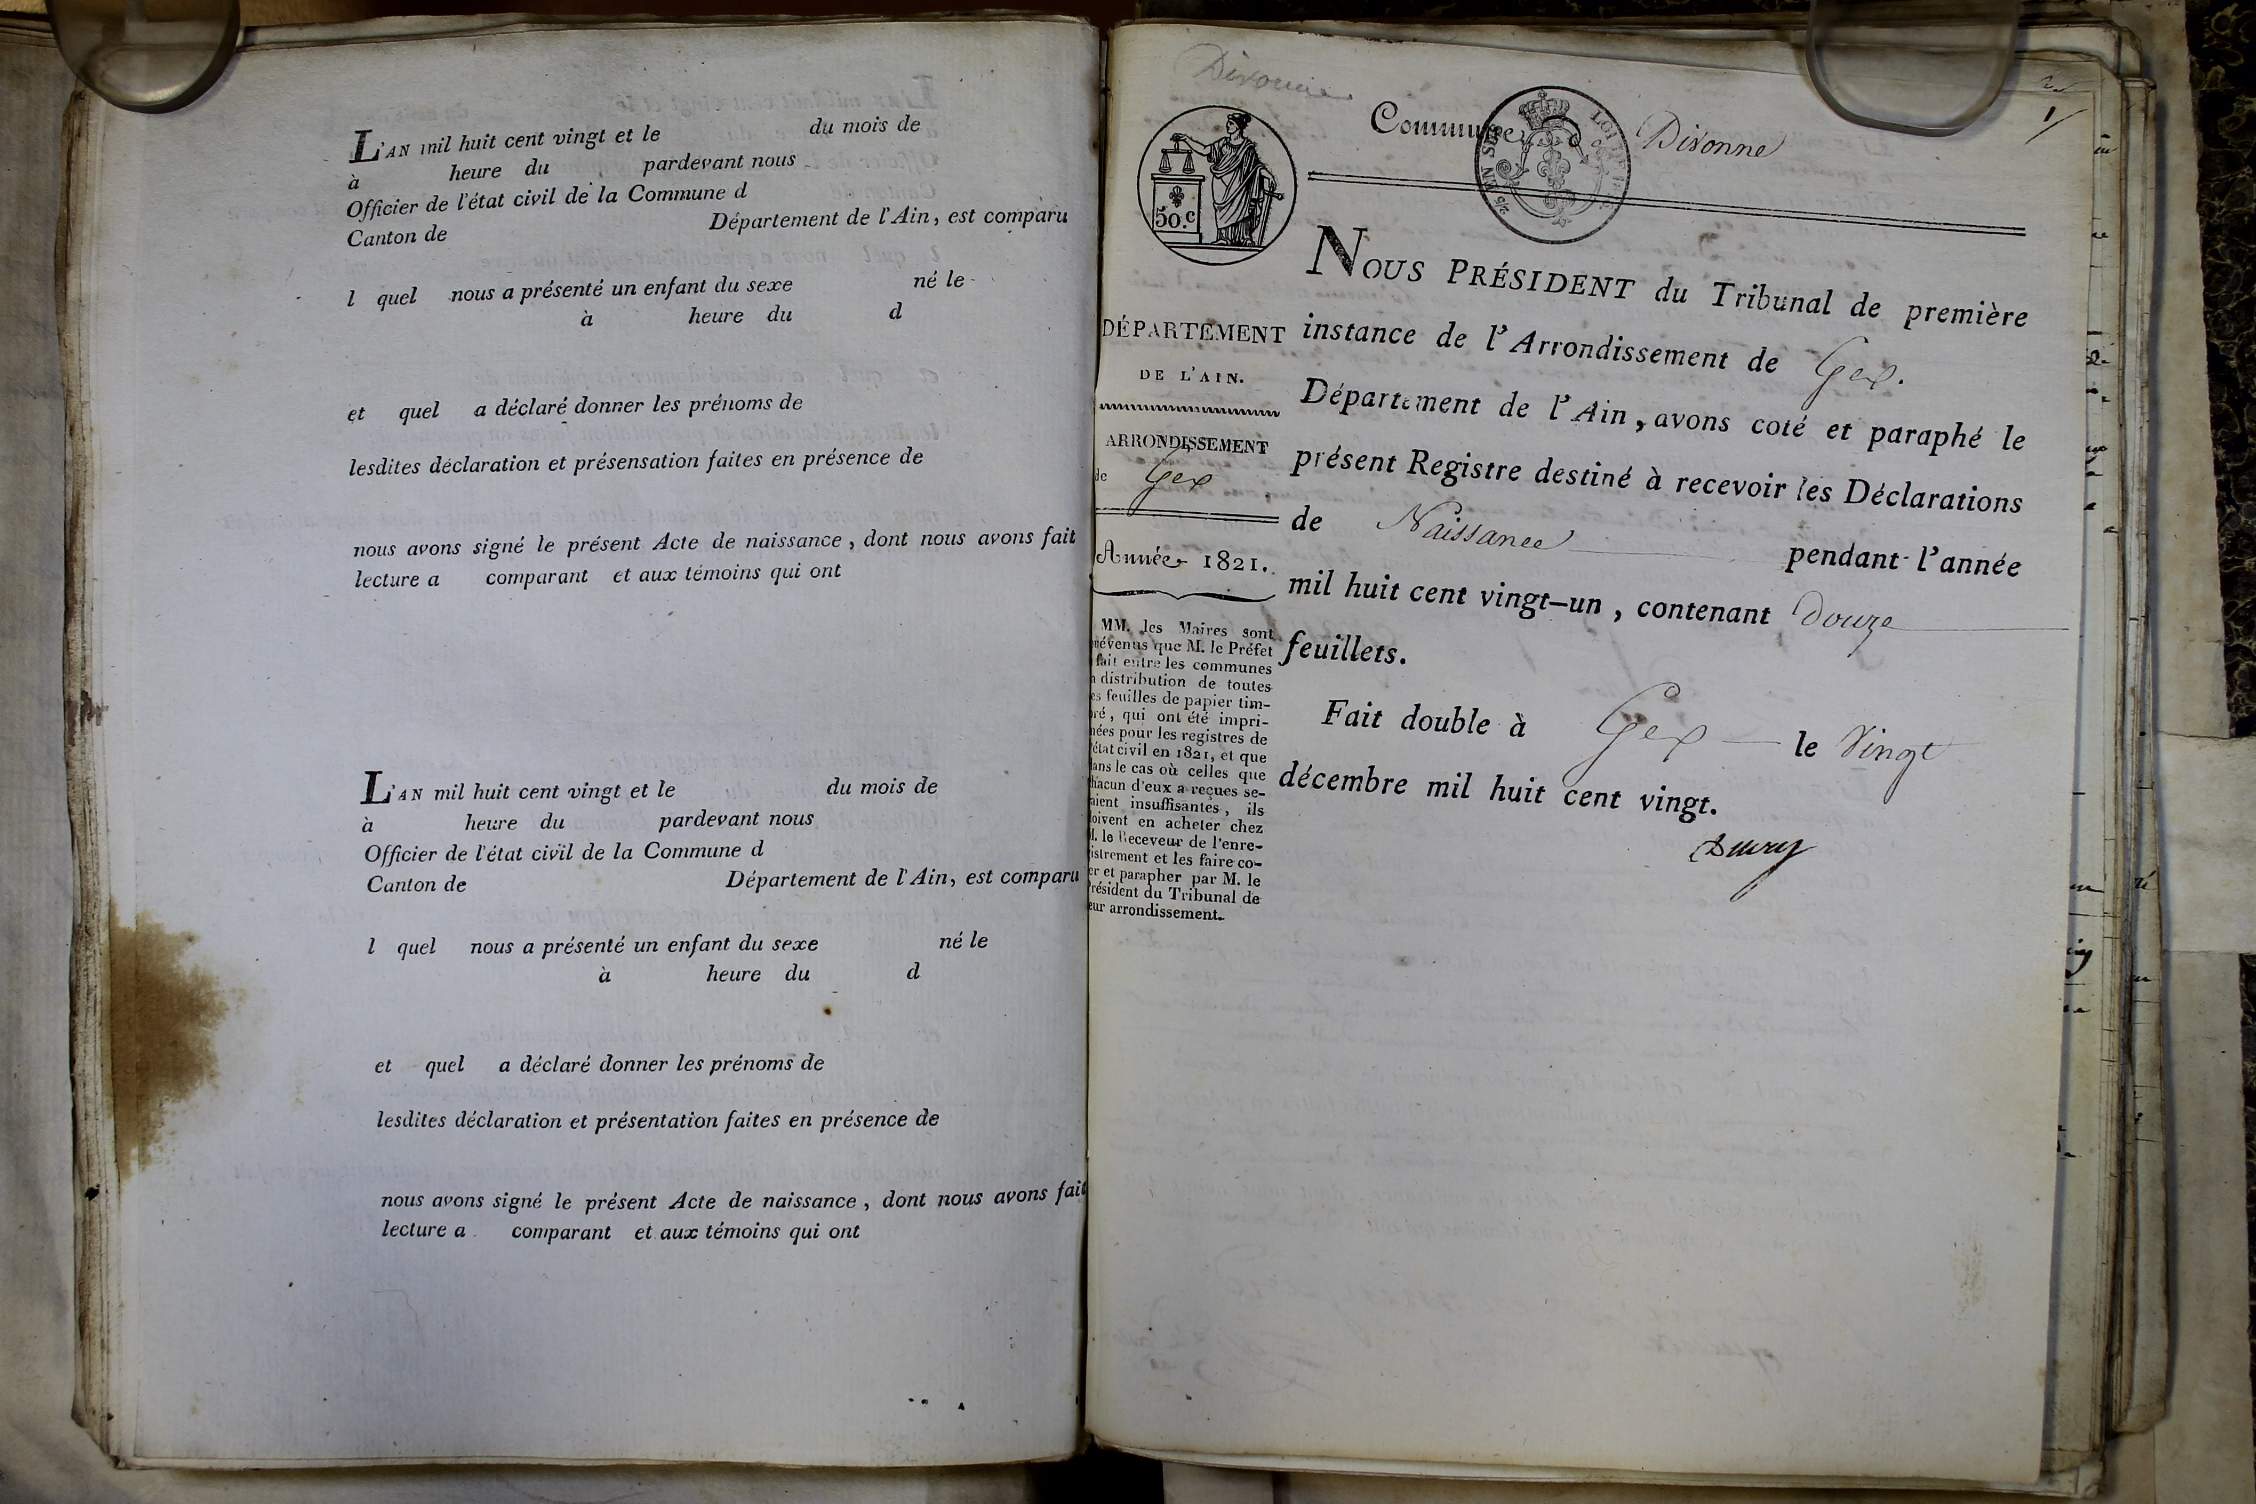 L'AN mil huit cent vingt et le du mois de
à heure du pardevant nous
Officier de l'état civil de la Commune d
Canton de Département de l'Ain, est comparu
l quel nous a présenté un enfant du sexe né le
à heure du d
et quel a déclaré donner les prénoms de
lesdites déclaration et présensation faites en présence de
nous avons signé le présent Acte de naissance, dont nous avons fait
lecture a comparant et aux témoins qui ont
L'AN mil huit cent vingt et le du mois de
à heure du pardevant nous
Officier de l'état civil de la Commune d
Canton de Département de l'Ain, est comparu
l quel nous a présenté un enfant du sexe né le
à heure du d
et quel a déclaré donner les prénoms de
lesdites déclaration et présentation faites en présence de
nous avons signé le présent Acte de naissance, dont nous avons fait
lecture a comparant et aux témoins qui ont
Divonne
1
Commune Divonne
50.c
DÉPARTEMENT
DE L'AIN.
ARRONDISSEMENT
de Gex
Année 1821.
MM. les Maires sont
prévenus que M. le Préfet
fait entre les communes
la distribution de toutes
les feuilles de papier tim-
bré, qui ont été impri-
mées pour les registres de
l'état civil en 1821, et que
dans le cas où celles que
chacun d'eux a reçues se-
raient insuffisantes, ils
doivent en acheter chez
M. le Receveur de l'enre-
gistrement et les faire co-
ter et parapher par M. le
Président du Tribunal de
leur arrondissement.
NOUS PRÉSIDENT du Tribunal de première
instance de l'Arrondissement de Gex.
Département de l'Ain, avons coté et paraphé le
présent Registre destiné à recevoir les Déclarations
de Naissance pendant l'année
mil huit cent vingt-un, contenant Douze
feuillets.
Fait double à Gex le Vingt
décembre mil huit cent vingt.